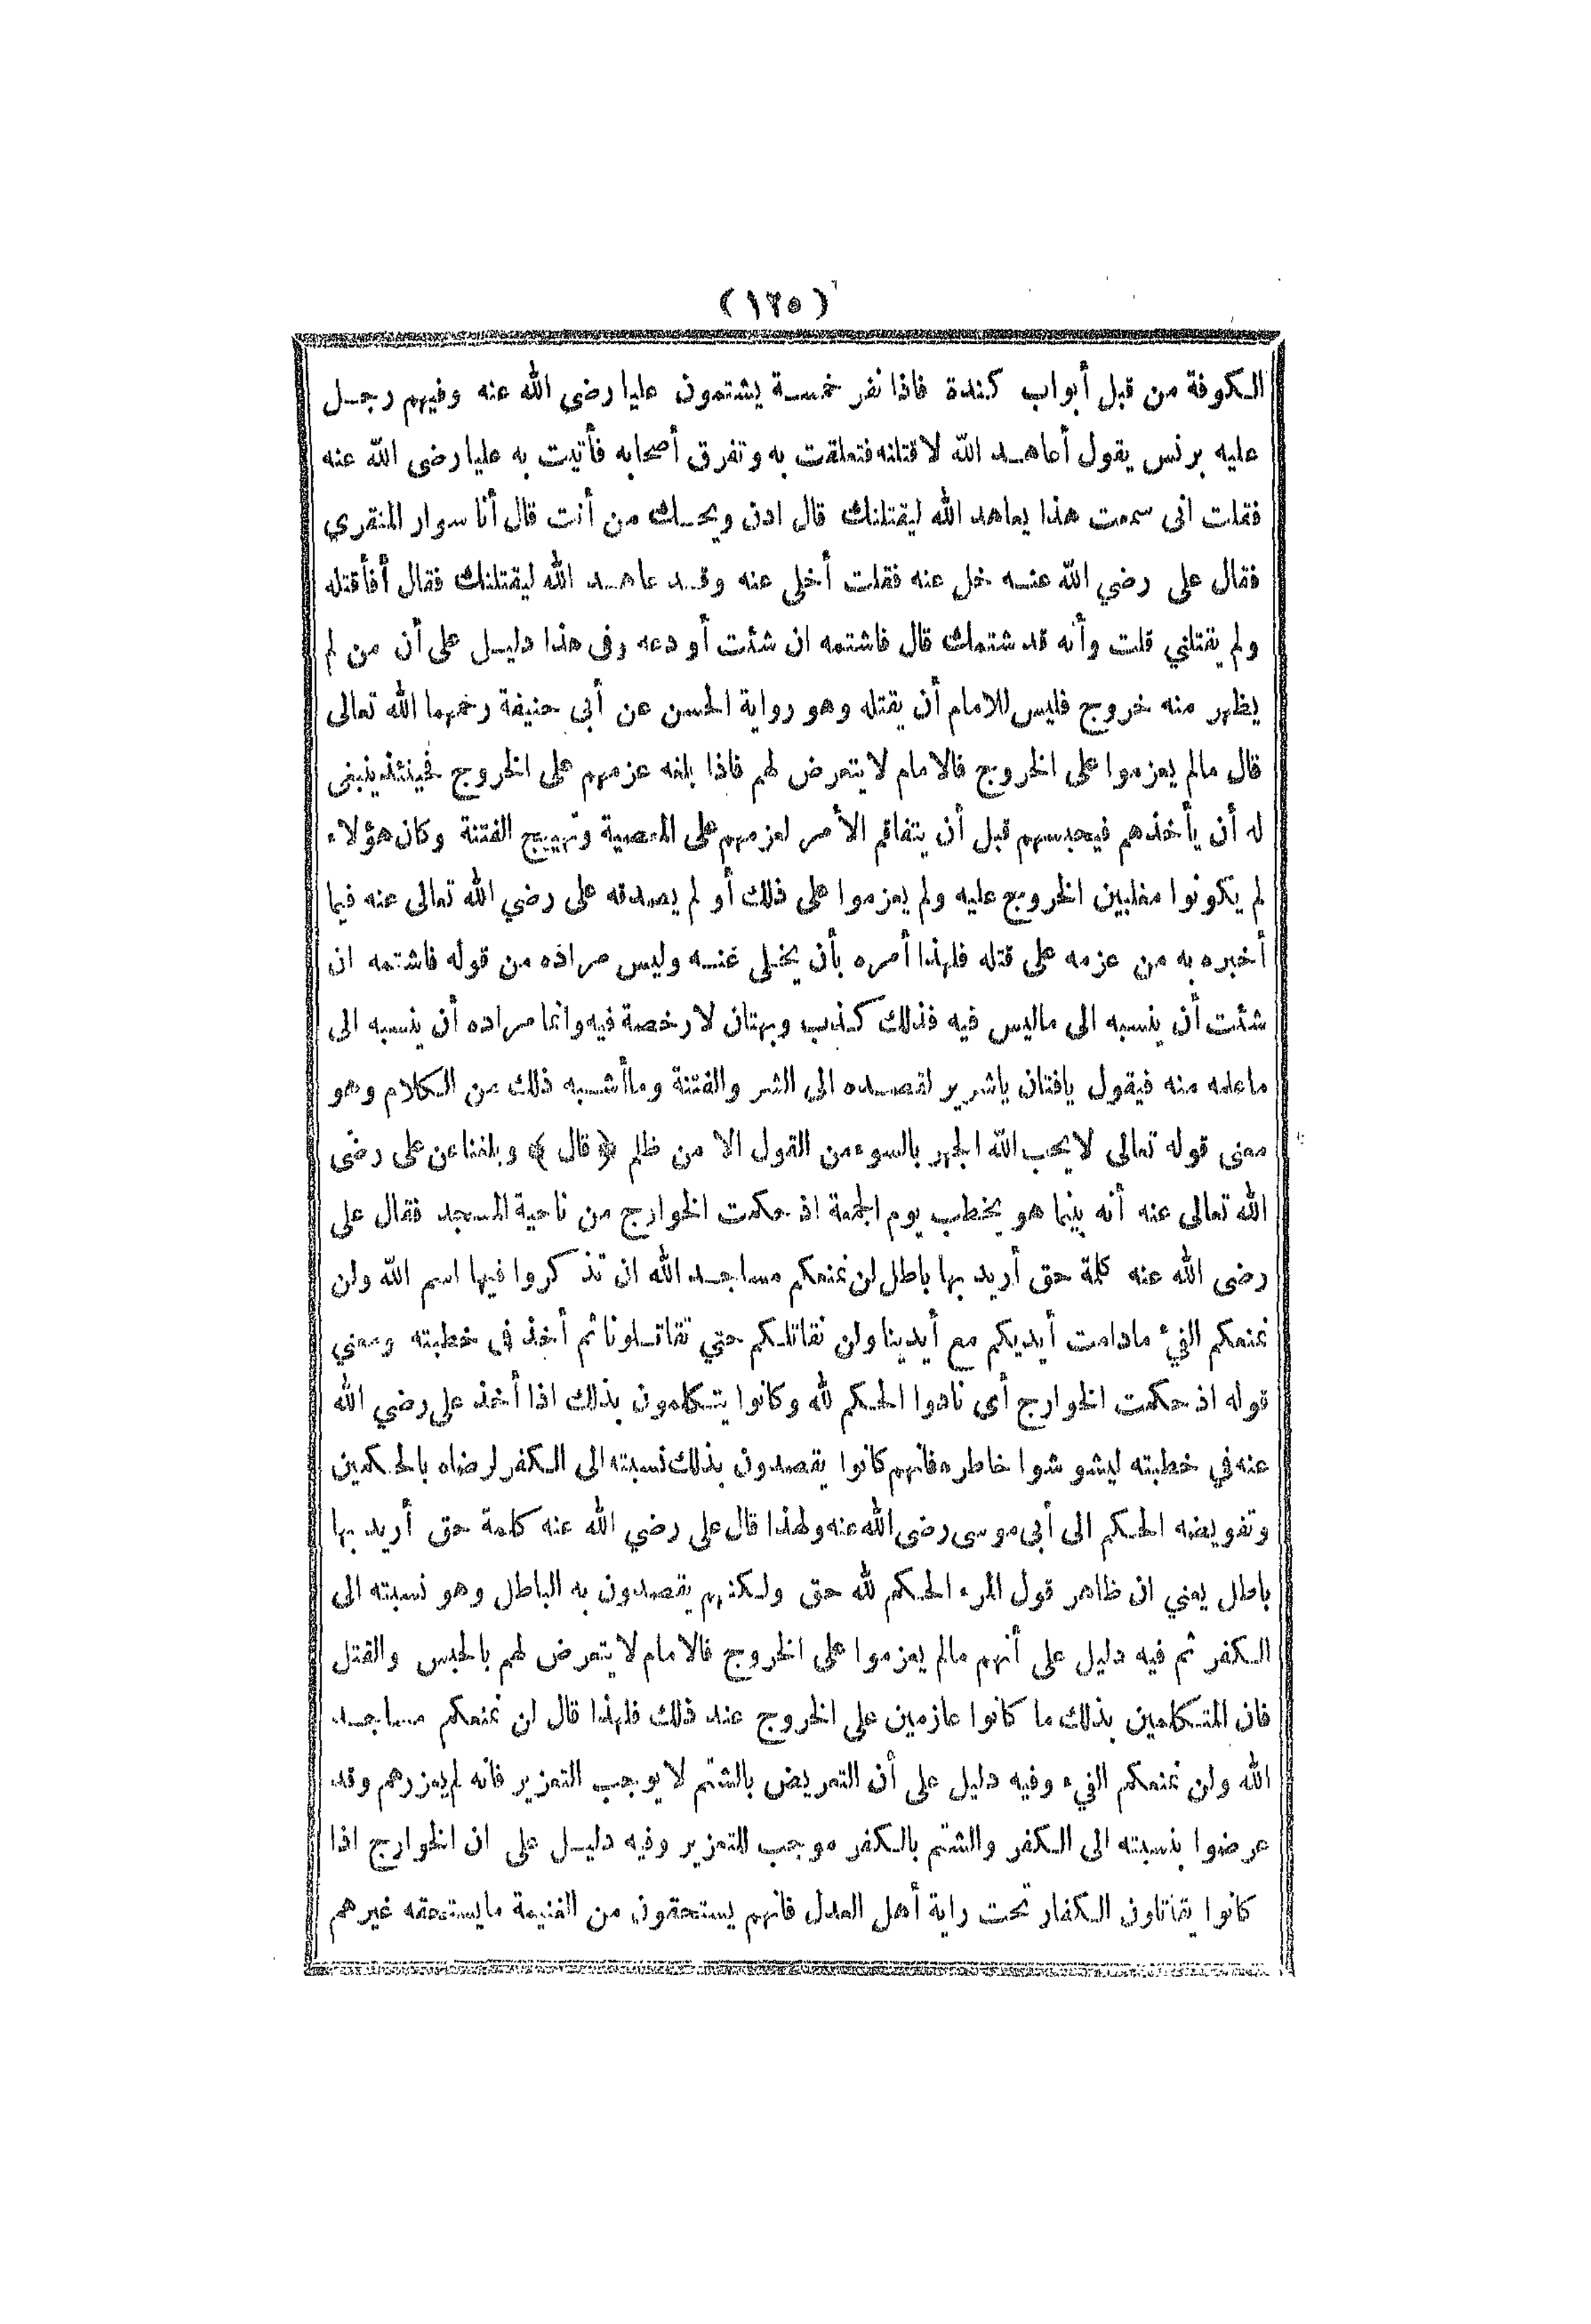 (١٢٥)
الكوفة من قبل أبواب كندة فاذا نفر خمسة يشتمون عليا رضى الله عنه وفيهم رجل
عليه برنس يقول أعاهد الله لاقتلنه فتعلقت به وتفرق أصحابه فأتيت به عليا رضى الله عنه
فقلت انى سمعت هذا يعاهد الله ليقتلنك قال ادن ويحك من أنت قال أنا سوار المنقري
فقال على رضي الله عنه خل عنه فقلت أخلى عنه وقد عاهد الله ليقتلنك فقال أفأقتله
ولم يقتلني قلت وأنه قد شتمك قال فاشتمه ان شئت أو دعه وفى هذا دليل على أن من لم
يظهر منه خروج فليس للامام أن يقتله وهو رواية الحسن عن أبى حنيفة رحمهما الله تعالى
قال مالم يعزموا على الخروج فالامام لا يتعرض لهم فاذا بلغه عزمهم على الخروج فحينئذ ينبغى
له أن يأخذهم فيحبسهم قبل أن يتفاقم الأمر لعزمهم على المعصية وتهييج الفتنة وكان هؤلاء
لم يكونوا مغلبين الخروج عليه ولم يعزموا على ذلك أو لم يصدقه على رضي الله تعالى عنه فيما
أخبره به من عزمه على قتله فلهذا أمره بأن يخلى عنه وليس مراده من قوله فاشتمه ان
شئت أن ينسبه الى ماليس فيه فذلك كذب وبهتان لا رخصة فيه وانما مراده أن ينسبه الى
ماعلمه منه فيقول يافتان ياشرير لقصده الى الشر والفتنة وماأشبه ذلك من الكلام وهو
معنى قوله تعالى لا يحب الله الجهر بالسوء من القول الا من ظلم ﴿قال﴾ وبلغنا عن على رضى
الله تعالى عنه أنه بينما هو يخطب يوم الجمعة اذ حكمت الخوارج من ناحية المسجد فقال على
رضى الله عنه كلمة حق أريد بها باطل لن نمنعكم مساجد الله ان تذكروا فيها اسم الله ولن
نمنعكم الفئ مادامت أيديكم مع أيدينا ولن نقاتلكم حتي تقاتلونا ثم أخذ فى خطبته ومعني
قوله اذ حكمت الخوارج أى نادوا الحكم لله وكانوا يتكلمون بذلك اذا أخذ على رضي الله
عنه في خطبته ليشوشوا خاطره فانهم كانوا يقصدون بذلك نسبته الى الكفر لرضاه بالحكمين
وتفويضه الحكم الى أبى موسى رضى الله عنه ولهذا قال على رضي الله عنه كلمة حق أريد بها
باطل يعني ان ظاهر قول المرء الحكم لله حق ولكنهم يقصدون به الباطل وهو نسبته الى
الكفر ثم فيه دليل على أنهم مالم يعزموا على الخروج فالامام لا يتعرض لهم بالحبس والقتل
فان المتكلمين بذلك ما كانوا عازمين على الخروج عند ذلك فلهذا قال لن نمنعكم مساجد
الله ولن نمنعكم الفيء وفيه دليل على أن التعريض بالشتم لا يوجب التعزير فانه لم يعزرهم وقد
عرضوا بنسبته الى الكفر والشتم بالكفر موجب للتعزير وفيه دليل على ان الخوارج اذا
كانوا يقاتلون الكفار تحت راية أهل العدل فانهم يستحقون من الغنيمة مايستحقه غيرهم